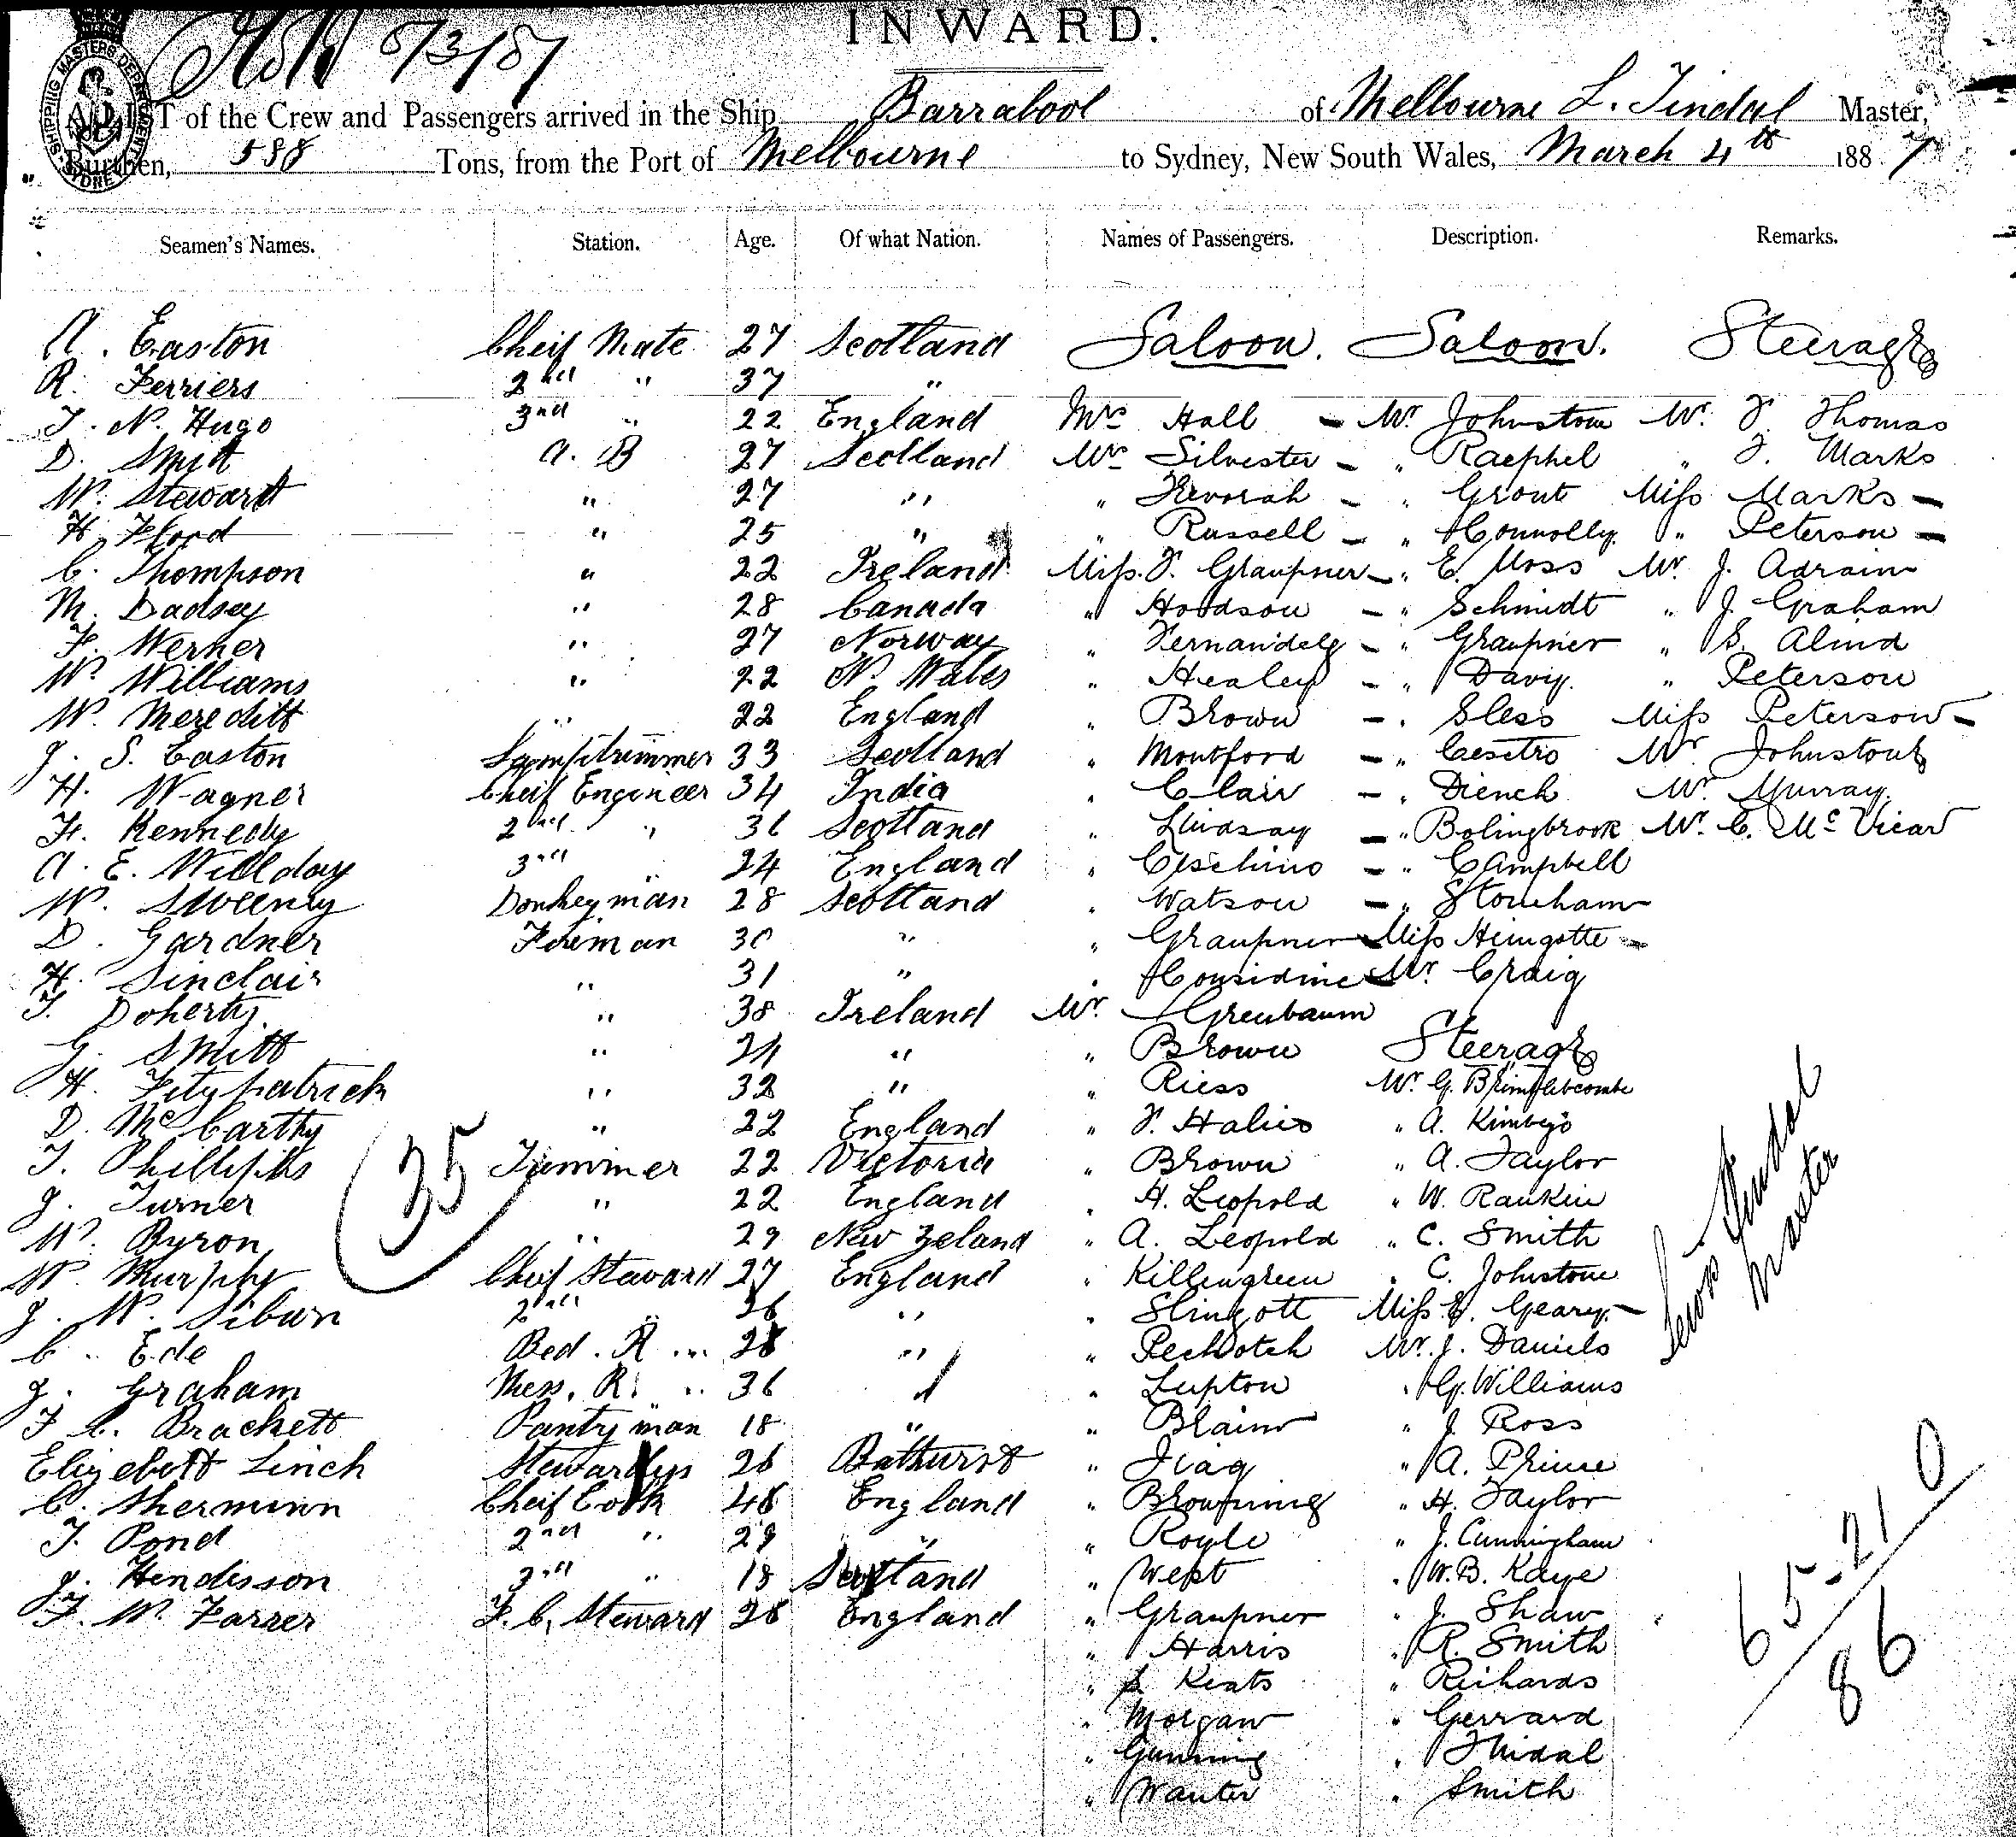 INWARD.
5/3/87
A LIST of the Crew and Passengers arrived in the Ship Barrabool of Melbourne L. Tindal Master,
Burthen, 588 Tons, from the Port of Melbourne to Sydney, New South Wales, March 4th 1887
Seamen's Names. Station. Age. Of what Nation. Names of Passengers. Description. Remarks.
A. Easton Cheif Mate 27 Scotland Saloon. Saloon. Steerage
R. Ferriers 2nd " 37 "
T. N. Hugo 3rd " 22 England Mrs Hall - Mr. Johnston Mr. F. Thomas
D. Smith A. B 27 Scotland Mrs Silvester - " Raephel " F. Marks
W. Steward " 27 " " Trevorah - " Grout Miss Marks -
H. Flood " 25 " " Russell - " Connolly " Peterson -
C. Thompson " 22 Ireland Miss. F. Graupner - " E. Moss Mr. J. Adrain
M. Dadsey " 28 Canada " Hoodson - " Schmidt " J. Graham
F. Werner " 27 Norway " - " Graupner " S. Alind
W. Williams " 22 N. Wales " Healey - " Davy. " Peterson
W. Meredith " 22 England " Brown - " Sless Miss Peterson -
J. S. Easton Lamptrimmer 33 Scotland " Montford - " Mr Johnstone
H. Wagner Cheif Engineer 34 India " Clair - " Diench Mr. Murray.
H. Kennedy 2nd " 36 Scotland " Lindsay - " Bolingbrook Mr. C. McVicar
A. E. Willday 3rd " 24 England " - " Campbell
W. Sweeny Donkeyman 28 Scotland " Watson - " Stoneham
D. Gardner Fireman 30 " " Graupner - Miss Heingotte -
H. Sinclair " 31 " " Considine - Mr. Craig
T. Doherty. " 38 Ireland Mr. Greubaum
G. Smith " 24 " " Brown Steerage
H. Fitzpatrick " 32 " " Riess Mr. G. Brimblecombe
D. McCarthy " 22 England " F. " A.
T. Phillips Trimmer 22 Victoria " Brown " A. Taylor
J. Turner " 22 England " H. Leopold " W. Rankin
W. Byron " 29 New Zeland " A. Leopold " C. Smith
W. Murphy Cheif Steward 27 England " Killengreen " C. Johnstone
J. W. Sibun 2nd " 36 " " Slingott Miss E. Geary. -
C. Ede Bed. R " 28 " " Mr. J. Daniels
J. Graham Mess. R. " 36 " " Lupton " G. Williams
F. C. Brackett Pantryman 18 " " Blain " J. Ross
Elizebett Linch Stewardess 26 Bathurst " " A. Prince
C. Shermunn Cheif Cook 48 England " Browning " H. Taylor
T. Pond 2nd " 29 " " Royle " J. Cunningham
J. Hendisson 3rd " 18 Scotland " West " W. B. Kaye
F. W. Farrer F. C. Steward 28 England " Graupner " J. Shaw
" Harris " R. Smith
" S. Keats " Richards
" Morgan " Gerrard
" Gunning " Tindal
" Wanter " Smith
35
Lewis Tindal
Master
65-21 0
86